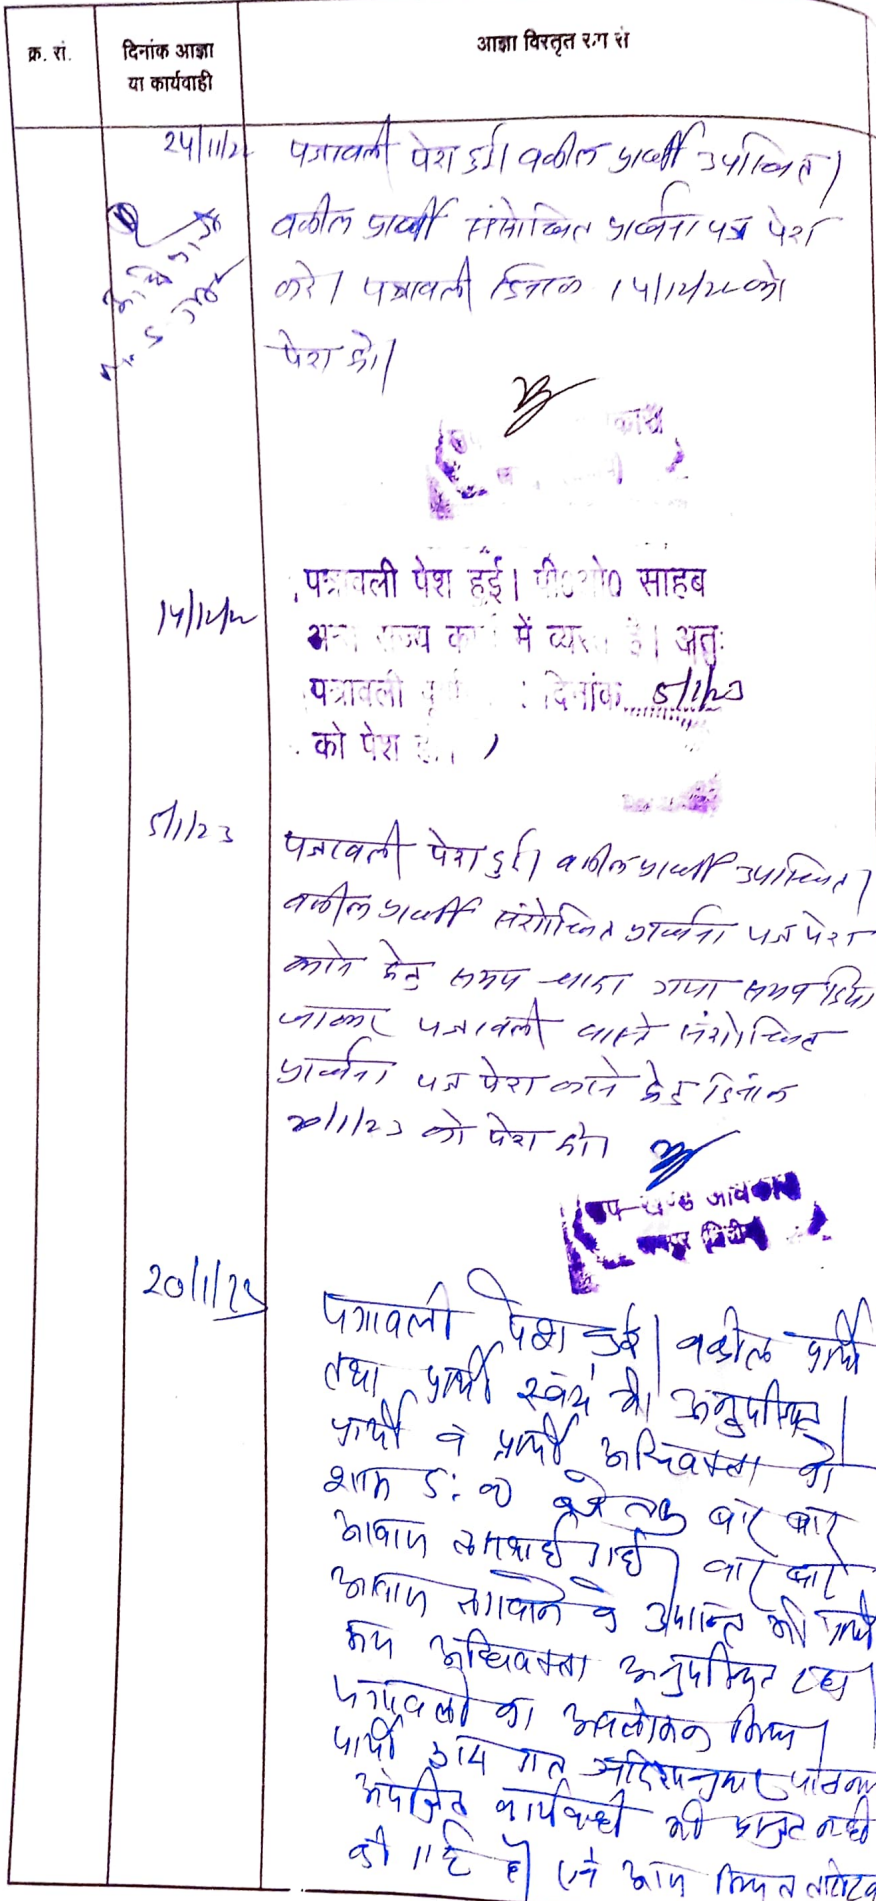 क्र. सं.
दिनांक आज्ञा
या कार्यवाही
आज्ञा विस्तृत रूप से
24/11/22 पत्रावली पेश हुई। वकील प्रार्थी उपस्थित।
वकील प्रार्थी संशोधित प्रार्थना पत्र पेश
करे। पत्रावली दिनांक 14/12/22 को
पेश हो।
14/12/22
पत्रावली पेश हुई। पी०ओ० साहब
अन्य राज्य कार्य में व्यस्त है। अतः
पत्रावली दिनांक 5/1/23
को पेश हो।
5/1/23
पत्रावली पेश हुई। वकील प्रार्थी उपस्थित।
वकील प्रार्थी संशोधित प्रार्थना पत्र पेश
करने हेतु समय चाहा गया समय दिया
जाकर पत्रावली वास्ते संशोधित
प्रार्थना पत्र पेश करने हेतु दिनांक
20/1/23 को पेश हो।
उप-खण्ड
20/1/23
पत्रावली पेश हुई। वकील प्रार्थी
तथा प्रार्थी स्वयं भी अनुपस्थित।
प्रार्थी व प्रार्थी अधिवक्ता को
शाम 5:00 बजे तक बार बार
आवाज लगवाई गई। बार बार
आवाज लगवाने के उपरान्त भी प्रार्थी
मय अधिवक्ता अनुपस्थित रहा।
पत्रावली का अवलोकन किया।
प्रार्थी द्वारा गत
अपेक्षित कार्यवाही भी प्रस्तुत नहीं
की गई है।